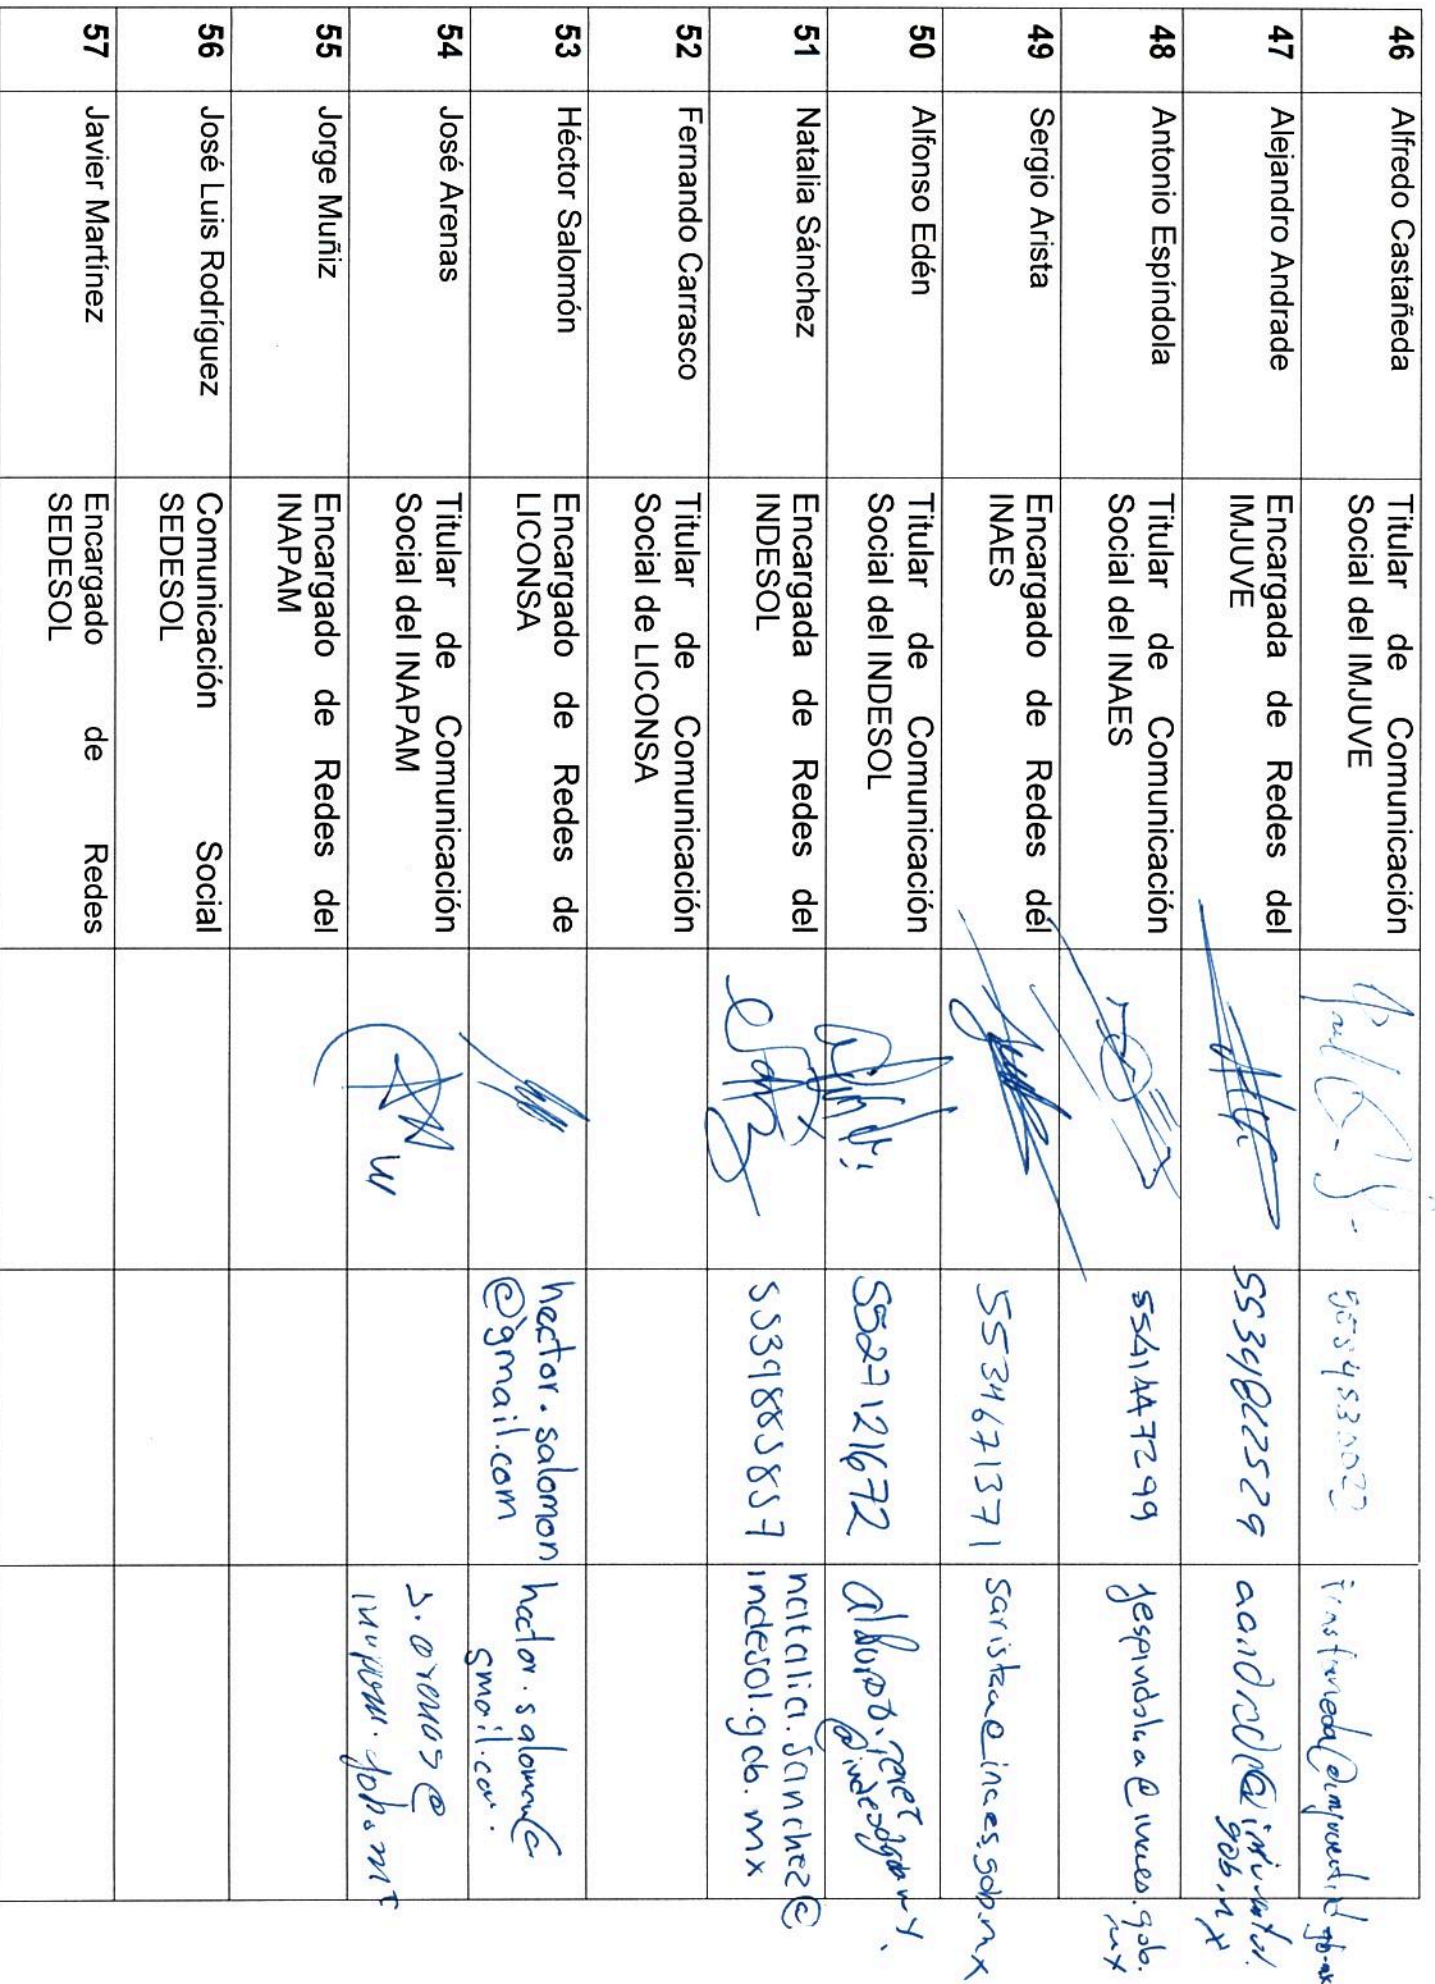 46 Alfredo Castañeda Titular de Comunicación
Social del IMJUVE
47 Alejandro Andrade Encargada de Redes del
IMJUVE
48 Antonio Espíndola Titular de Comunicación
Social del INAES
5541447299
49 Sergio Arista Encargado de Redes del
INAES
5534671371 sarista@inaes.gob.mx
50 Alfonso Edén Titular de Comunicación
Social del INDESOL
5527121672
51 Natalia Sánchez Encargada de Redes del
INDESOL
5539885857 natalia.sanchez@
indesol.gob.mx
52 Fernando Carrasco Titular de Comunicación
Social de LICONSA
53 Héctor Salomón Encargado de Redes de
LICONSA
hector.salomon
@gmail.com
hector.salomon@
gmail.com.
54 José Arenas Titular de Comunicación
Social del INAPAM
55 Jorge Muñiz Encargado de Redes del
INAPAM
56 José Luis Rodríguez Comunicación Social
SEDESOL
57 Javier Martínez Encargado de Redes
SEDESOL